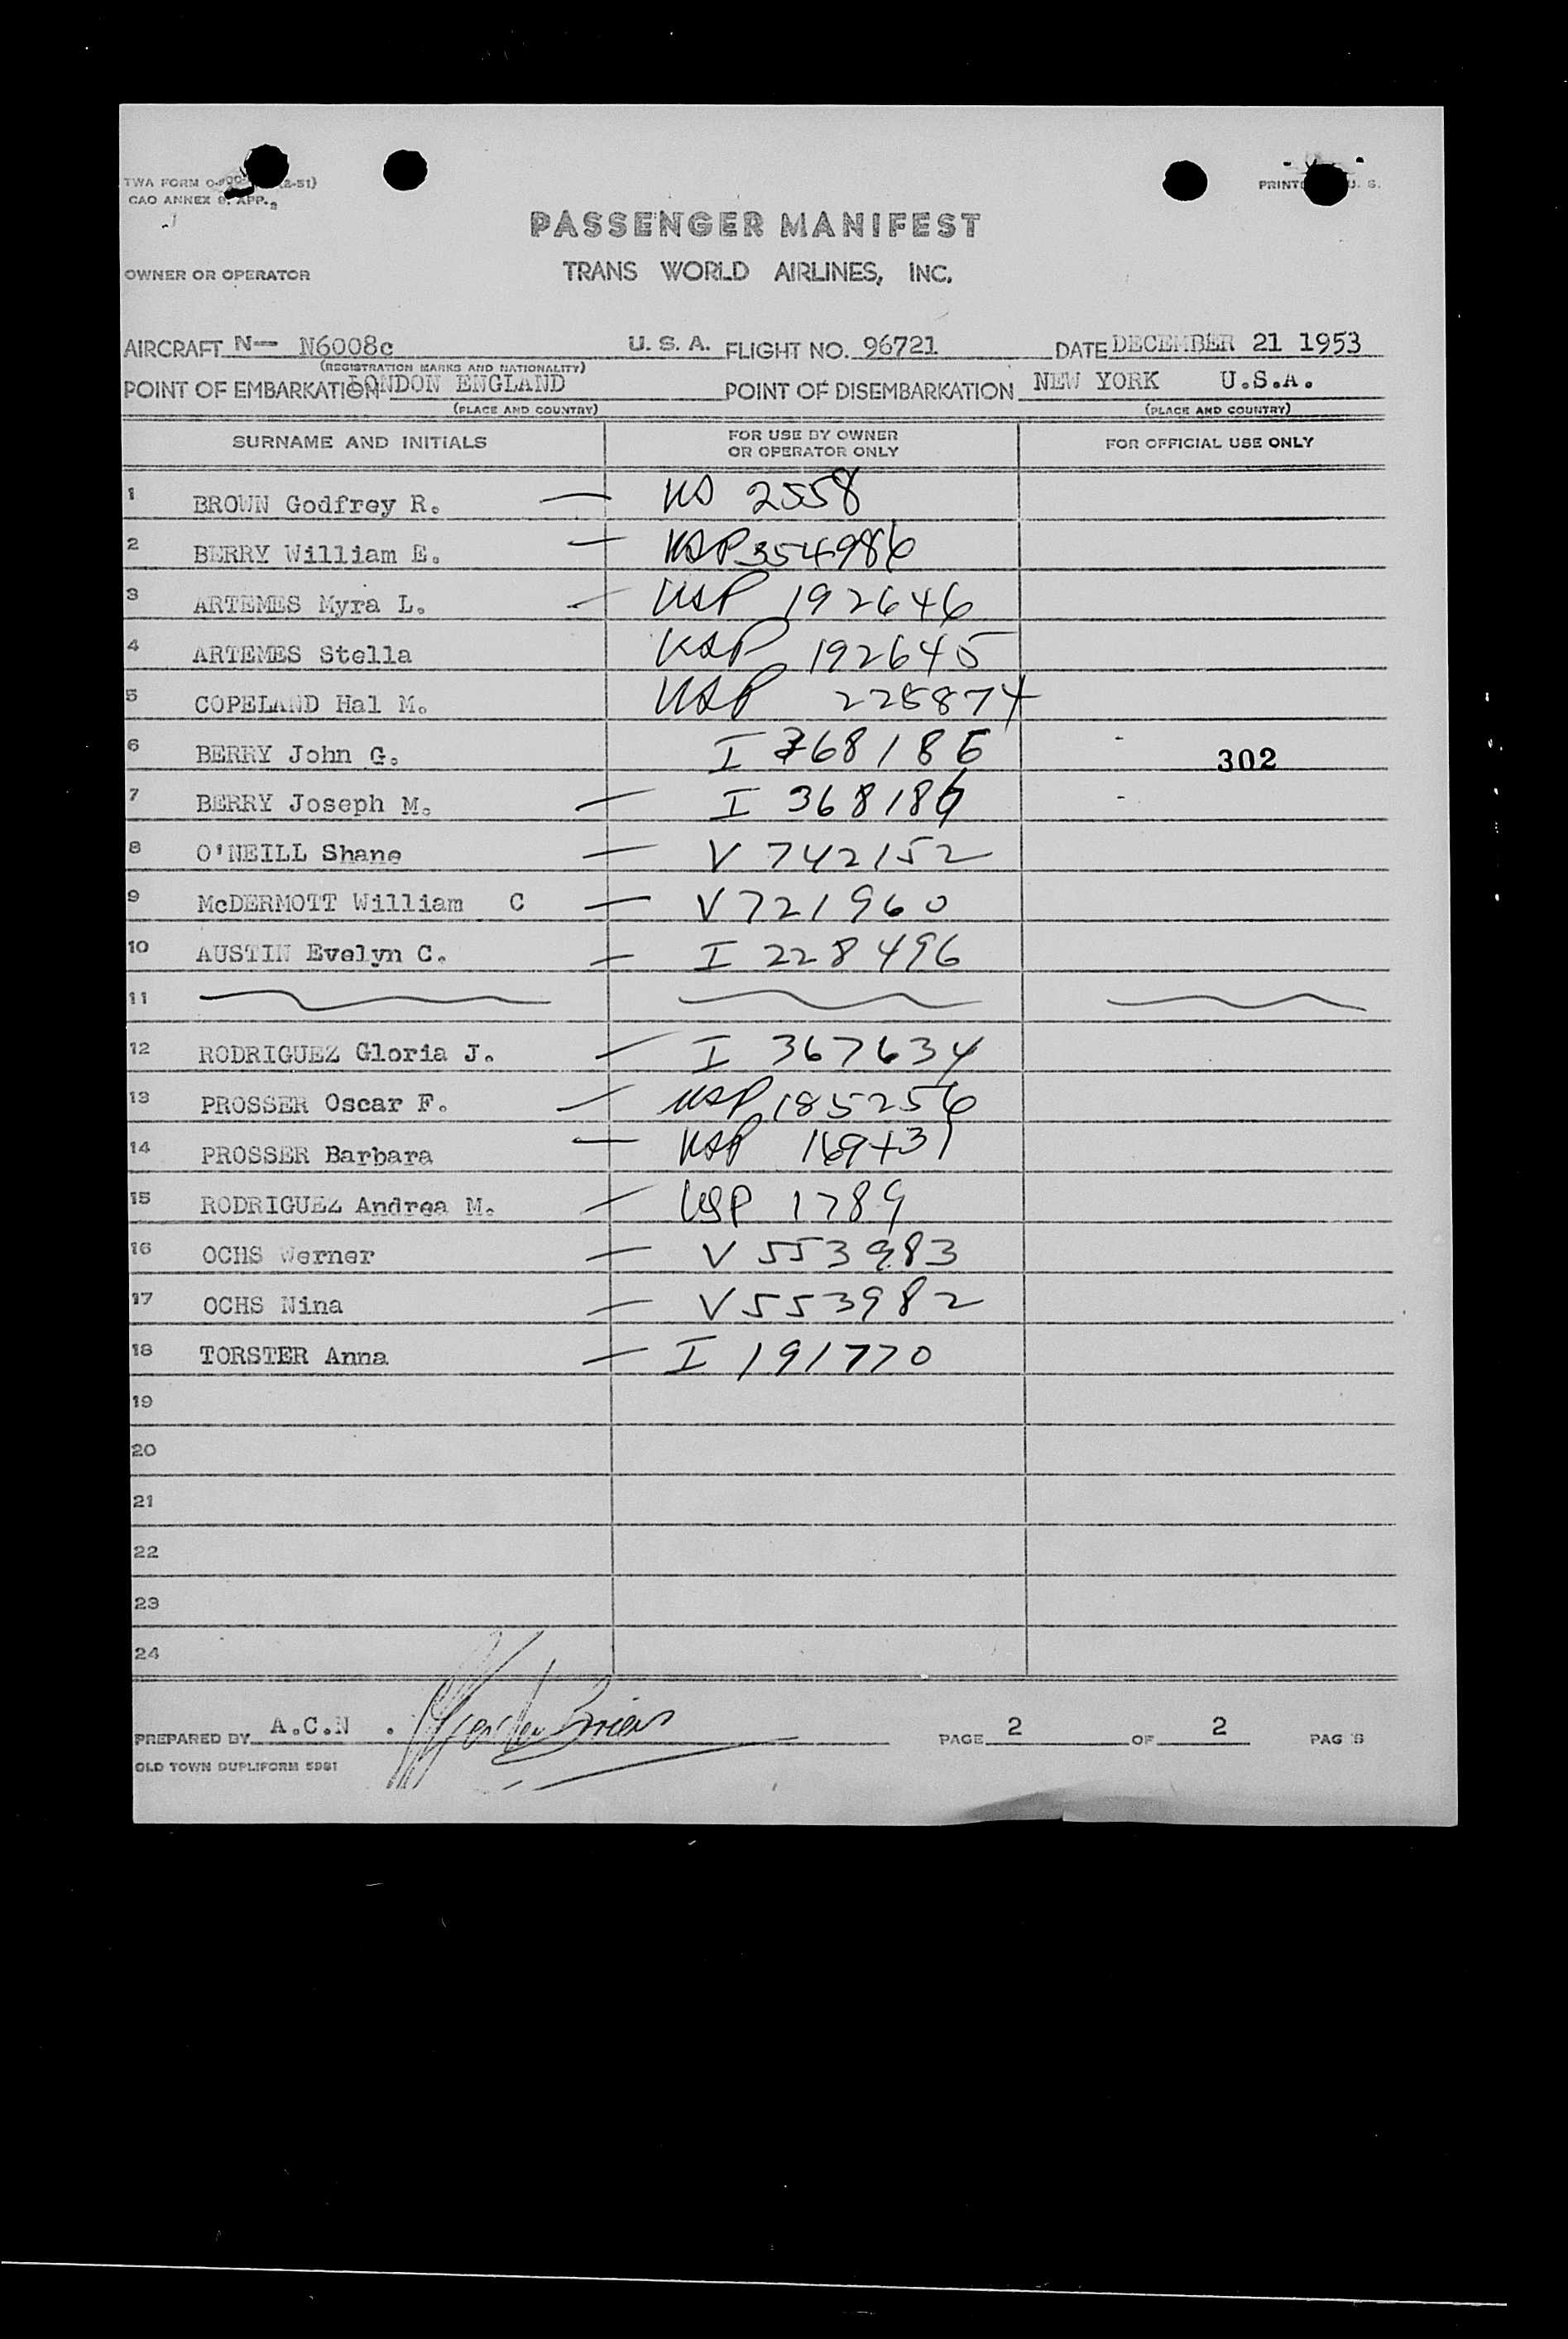 TWA FORM
CAO ANNEX 9, APP. 2
PASSENGER MANIFEST
OWNER OR OPERATOR TRANS WORLD AIRLINES, INC.
AIRCRAFT N— N6008c U. S. A. FLIGHT NO. 96721 DATE DECEMBER 21 1953
(REGISTRATION MARKS AND NATIONALITY)
POINT OF EMBARKATION LONDON ENGLAND POINT OF DISEMBARKATION NEW YORK U.S.A.
(PLACE AND COUNTRY) (PLACE AND COUNTRY)
SURNAME AND INITIALS FOR USE BY OWNER OR OPERATOR ONLY FOR OFFICIAL USE ONLY
1 BROWN Godfrey R. — US 2558
2 BERRY William E. — USP 354986
3 ARTEMES Myra L. — USP 192646
4 ARTEMES Stella USP 192645
5 COPELAND Hal M. USP 225874
6 BERRY John G. I 368186 302
7 BERRY Joseph M. — I 368186
8 O'NEILL Shane — V 742152
9 McDERMOTT William C — V 721960
10 AUSTIN Evelyn C. — I 228496
11
12 RODRIGUEZ Gloria J. — I 367634
13 PROSSER Oscar F. — USP 185256
14 PROSSER Barbara — USP 169431
15 RODRIGUEZ Andrea M. — USP 1789
16 OCHS Werner — V 553983
17 OCHS Nina — V 553982
18 TORSTER Anna — I 191770
19
20
21
22
23
24
PREPARED BY A.C.N . PAGE 2 OF 2 PAG S
OLD TOWN DUPLIFORM 5981